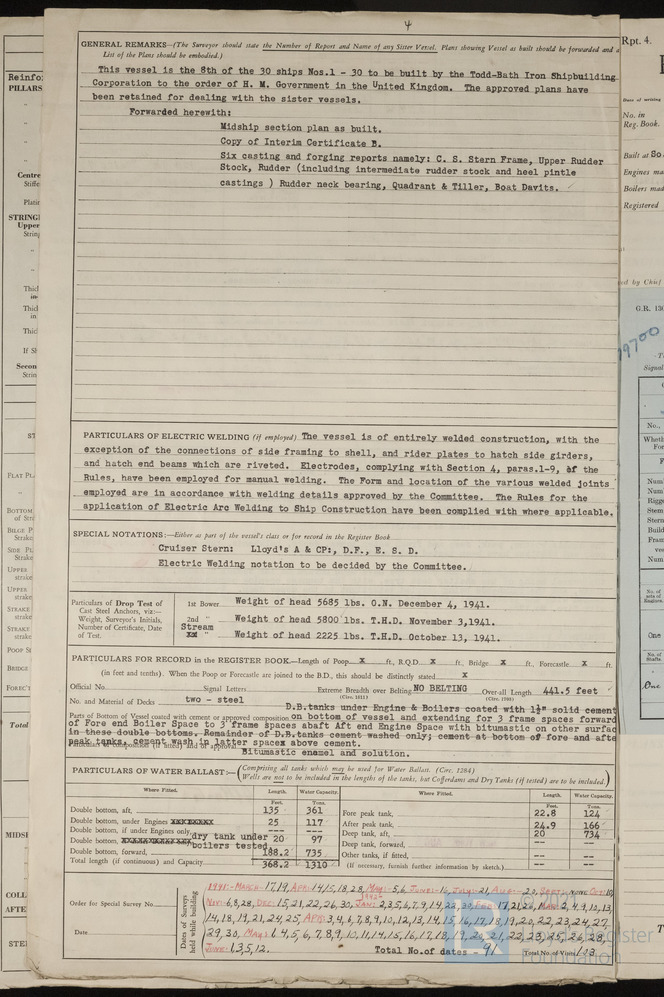 4
GENERAL REMARKS—(The Surveyor should state the Number of Report and Name of any Sister Vessel. Plans showing Vessel as built should be forwarded and a
List of the Plans should be embodied.)
This vessel is the 8th of the 30 ships Nos.1 - 30 to be built by the Todd-Bath Iron Shipbuilding
Corporation to the order of H. M. Government in the United Kingdom. The approved plans have
been retained for dealing with the sister vessels.
Forwarded herewith:
Midship section plan as built.
Copy of Interim Certificate B.
Six casting and forging reports namely: C. S. Stern Frame, Upper Rudder
Stock, Rudder (including intermediate rudder stock and heel pintle
castings ) Rudder neck bearing, Quadrant & Tiller, Boat Davits.
PARTICULARS OF ELECTRIC WELDING (if employed) The vessel is of entirely welded construction, with the
exception of the connections of side framing to shell, and rider plates to hatch side girders,
and hatch end beams which are riveted. Electrodes, complying with Section 4, paras.1-9, of the
Rules, have been employed for manual welding. The Form and location of the various welded joints
employed are in accordance with welding details approved by the Committee. The Rules for the
application of Electric Arc Welding to Ship Construction have been complied with where applicable.
SPECIAL NOTATIONS:—Either as part of the vessel's class or for record in the Register Book
Cruiser Stern: Lloyd's A & CP:, D.F., E. S. D.
Electric Welding notation to be decided by the Committee.
Particulars of Drop Test of
Cast Steel Anchors, viz:—
Weight, Surveyor's Initials,
Number of Certificate, Date
of Test.
1st Bower Weight of head 5685 lbs. O.N. December 4, 1941.
2nd " Weight of head 5800 lbs. T.H.D. November 3,1941.
Stream " Weight of head 2225 lbs. T.H.D. October 13, 1941.
PARTICULARS FOR RECORD in the REGISTER BOOK.—Length of Poop X ft., R.Q.D. X ft., Bridge X ft., Forecastle X ft.
(in feet and tenths). When the Poop or Forecastle are joined to the B.D., this should be distinctly stated X
Official No. Signal Letters Extreme Breadth over Belting NO BELTING Over-all Length 441.5 feet
(Circ. 1611) (Circ. 1703)
No. and Material of Decks two - steel
D.B.tanks under Engine & Boilers coated with 1½" solid cement
Parts of Bottom of Vessel coated with cement or approved composition on bottom of vessel and extending for 3 frame spaces forward
of Fore end Boiler Space to 3 frame spaces abaft Aft end Engine Space with bitumastic on other surfac
in these double bottoms. Remainder of D.B.tanks cement washed only; cement at bottom of fore and afte
peak tanks, cement wash in latter spaces above cement.
Particulars of composition (if fitted) and of approval Bitumastic enamel and solution.
PARTICULARS OF WATER BALLAST:—(Comprising all tanks which may be used for Water Ballast. (Circ. 1284)
Wells are not to be included in the lengths of the tanks, but Cofferdams and Dry Tanks (if tested) are to be included.)
Where Fitted. Length. Water Capacity. Where Fitted. Length. Water Capacity.
Feet. Tons. Feet. Tons.
Double bottom, aft, 135 361 Fore peak tank, 22.8 124
Double bottom, under Engines 25 117 After peak tank, 24.9 166
Double bottom, if under Engines only, --- --- Deep tank, aft, 20 734
Double bottom, dry tank under 20 97 Deep tank, forward, -- --
boilers tested
Double bottom, forward, 188.2 735 Other tanks, if fitted, -- --
Total length (if continuous) and Capacity 368.2 1310 (If necessary, furnish further information by sketch.) -- --
Order for Special Survey No.
Date
Dates of Surveys
held while building
1941:- MARCH- 17,19, APR: 14,15,18,28, MAY: 5,6 JUNE:-16, JULY:-21, AUG:- 20, SEPT: NONE OCT: 10,
NOV: 6,8,28, DEC: 15,21,22,26,30, JAN: 2,3,5,6,7,9,14,22,30, FEB: 17,21,26, MAR: 2,4,9,10,13,
14,18,19,21,24,25, APR: 3,4,6,7,8,9,10,12,13,14,15,16,17,18,19,20,22,23,24,27,
29,30, MAY: 1,4,5,6,7,8,9,10,11,14,15,16,17,18,19,20,21,22,23,25,26,28,
JUNE: 1,3,5,12.
Total No.of dates - 91
Total No. of Visits 103
Reinfo
PILLARS
Centre
STRINGE
Upper
Secon
FLAT PL
BOTTOM
BILGE P
SIDE PL
UPPER
strake
UPPER
strake
STRAKE
STRAKE
POOP S
BRIDGE
FOREC'T
Total
MIDSH
COLL
AFTE
STE
Rpt. 4.
Date of writing
No. in
Reg. Book.
Built at So
Engines ma
Boilers mad
Registered
ed by Chief
G.R. 130
19700
Signal
No.,
Wheth
Num
Num
Rigge
Stem
Stern
Build
Fram
One
One
Lloyd's Register
Foundation